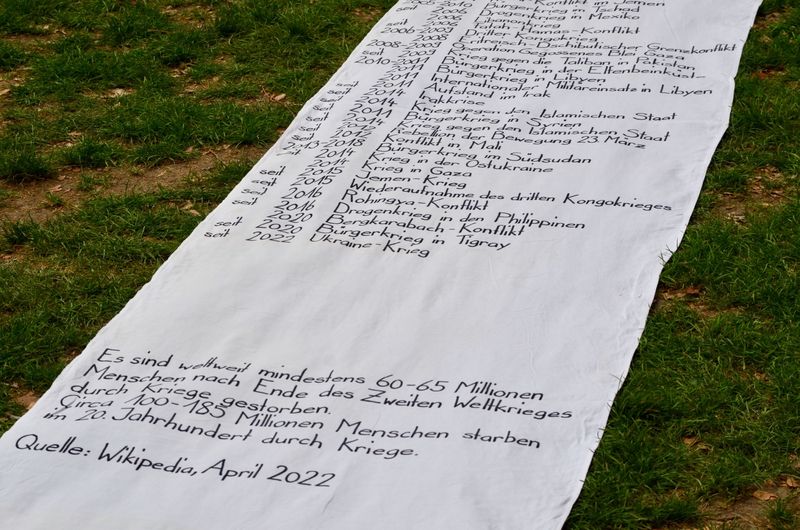 Konflikt im Jemen
2005-2010 Bürgerkrieg im Tschad
seit 2006 Drogenkrieg in Mexiko
2006 Libanonkrieg
Hamas-Konflikt
2006-2009 Dritter Kongokrieg
2008 Eritreisch-Dschibutischer Grenzkonflikt
2008-2009 Operation Gegossenes Blei, Gaza
seit Krieg gegen die Taliban in Pakistan
2010-2011 Bürgerkrieg in der Elfenbeinküste
2011 Bürgerkrieg in Libyen
2011 Internationaler Militäreinsatz in Libyen
Aufstand im Irak
seit 2014 Irakkrise
seit 2014 Krieg gegen den Islamischen Staat
seit 2011 Bürgerkrieg in Syrien
seit 2014 Krieg gegen den Islamischen Staat
Rebellion der Bewegung 23. März
seit 2012 Konflikt in Mali
2013-2018 Bürgerkrieg im Südsudan
seit 2014 Krieg in der Ostukraine
2014 Krieg in Gaza
seit 2015 Jemen-Krieg
seit 2015 Wiederaufnahme des dritten Kongokrieges
2016 Rohingya-Konflikt
seit 2016 Drogenkrieg in den Philippinen
2020 Bergkarabach-Konflikt
seit 2020 Bürgerkrieg in Tigray
seit 2022 Ukraine-Krieg
Es sind weltweit mindestens 60-65 Millionen
Menschen nach Ende des Zweiten Weltkrieges
durch Kriege gestorben.
Circa 100-185 Millionen Menschen starben
im 20. Jahrhundert durch Kriege.
Quelle: Wikipedia, April 2022